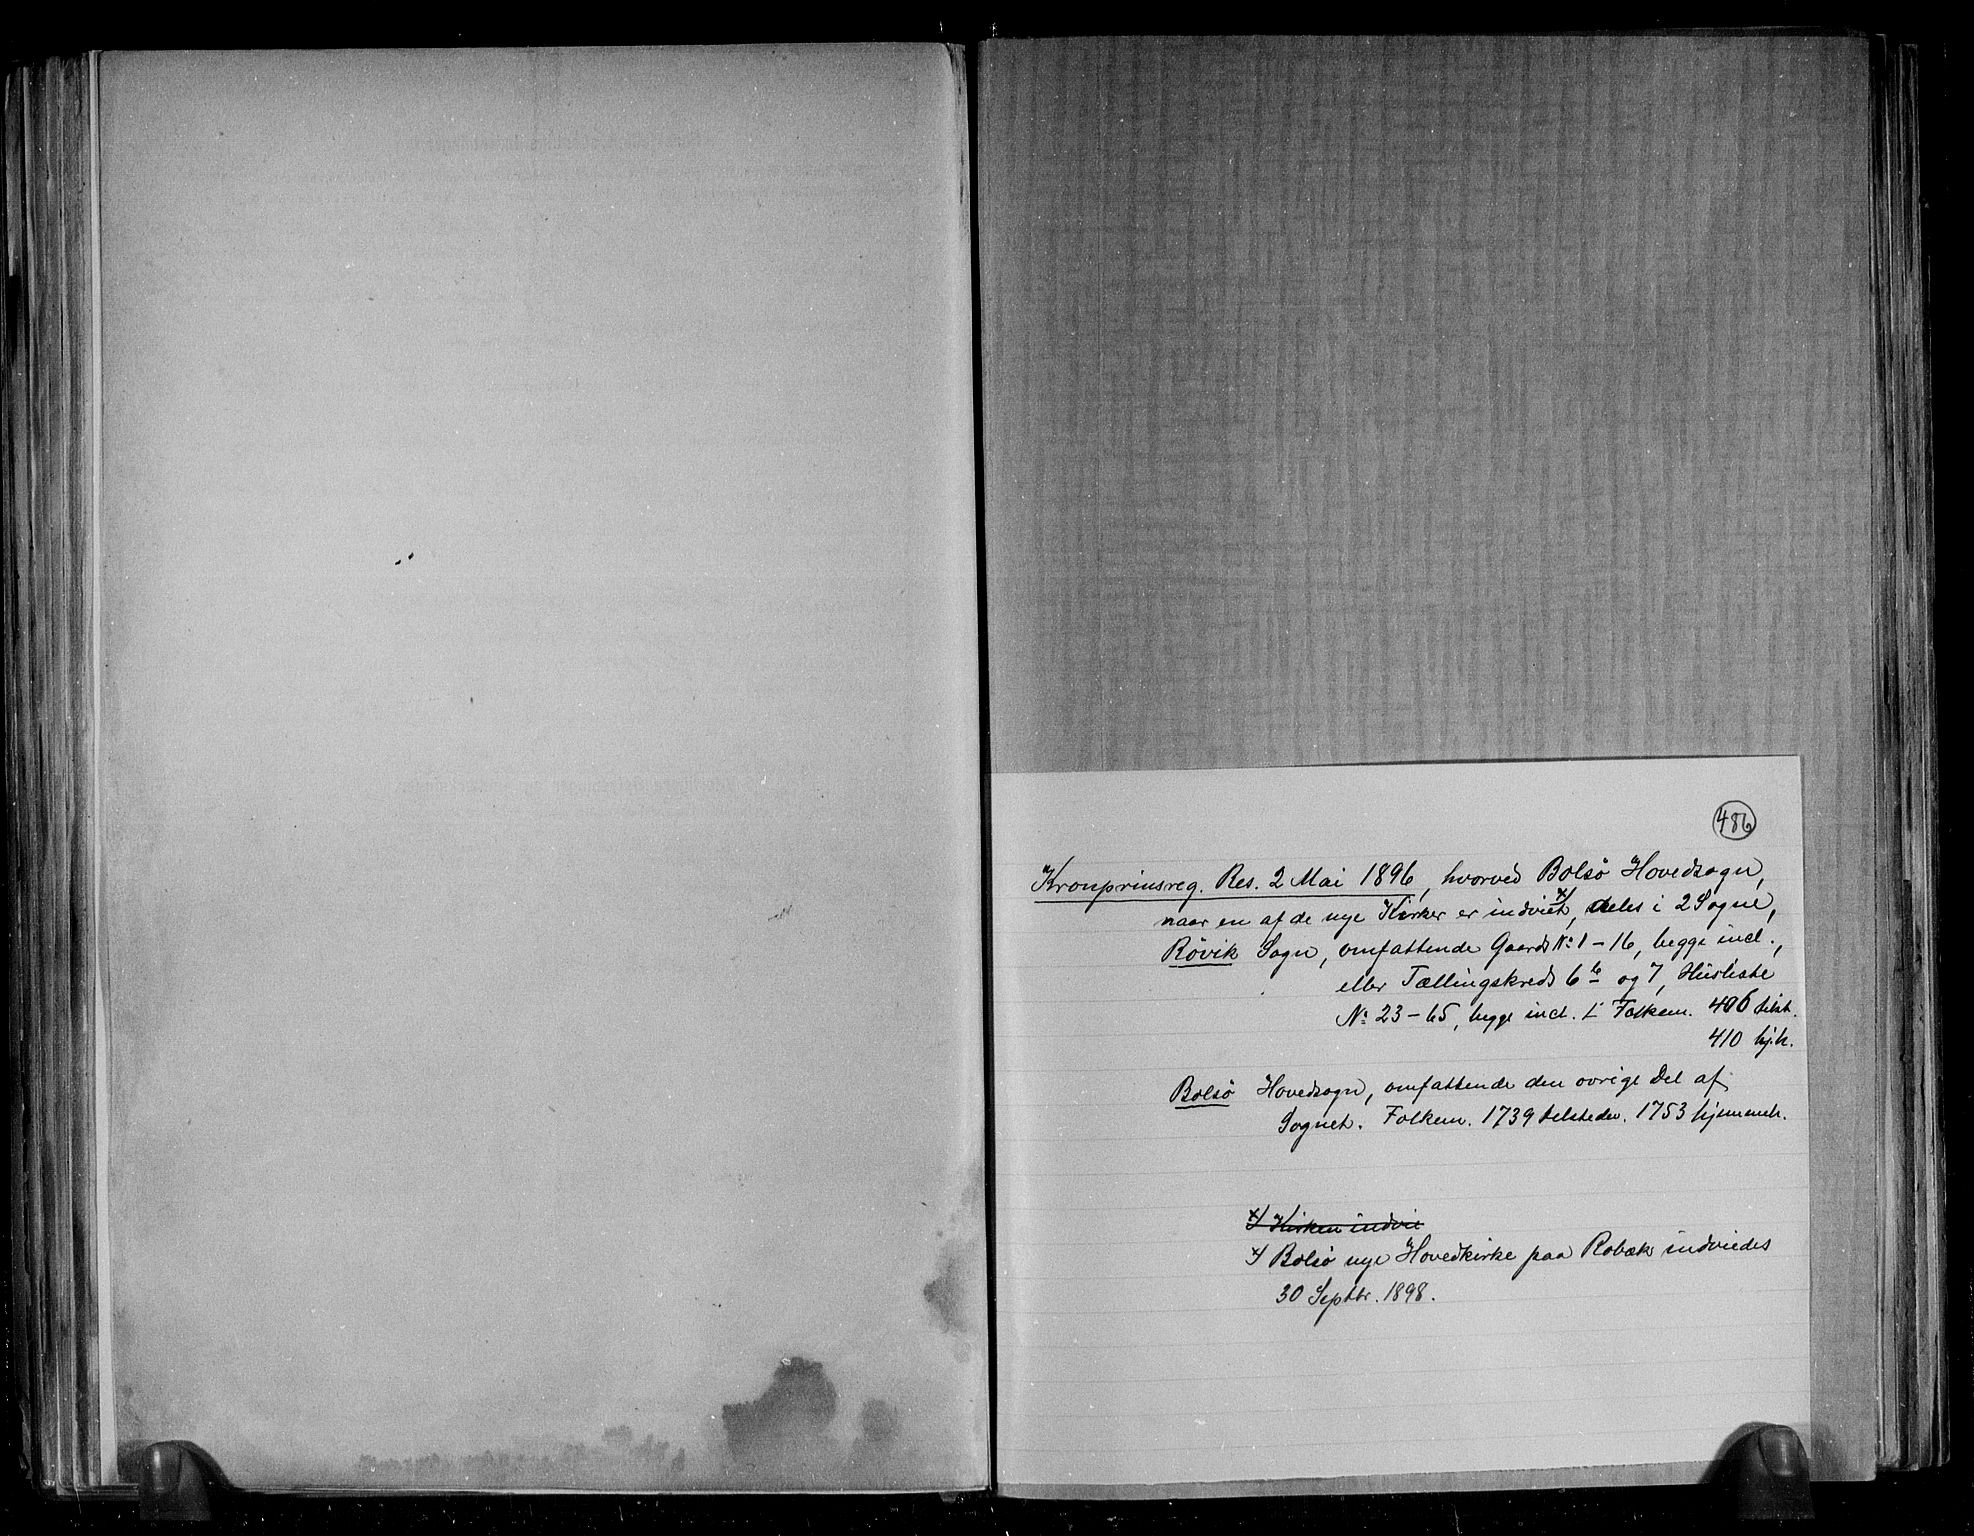 486
Kronprinsreg. Res. 2 Mai 1896, hvorved Bolsø Hovedsogn,
naar en af de nye Kirker er indviet x), deles i 2 Sogne,
Røvik Sogn, omfattende Gaards No 1-16, begge incl.,
eller Tællingskreds 6 b og 7, Husliste
No 23-65, begge incl. Folkem. 406 tilst.
410 hj.h.
Bolsø Hovedsogn, omfattende den øvrige Del af
Sognet. Folkem. 1739 tilstedev. 1753 hjemmeh.
x) Kirken indvie
x) Bolsø nye Hovedkirke paa Robæk indviedes
30 Septbr. 1898.